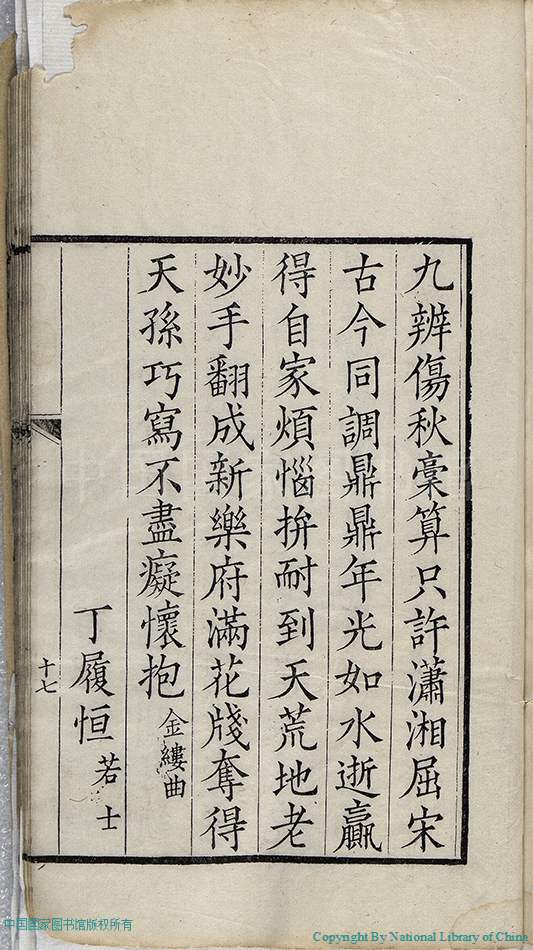 九辨傷秋稾算只許瀟湘屈宋
古今同調鼎鼎年光如水逝贏
得自家煩惱拚耐到天荒地老
妙手翻成新樂府滿花牋奪得
天孫巧寫不盡癡懷抱金縷曲
丁履恒若士
十七
中国国家图书馆版权所有
Copyright By National Library of China